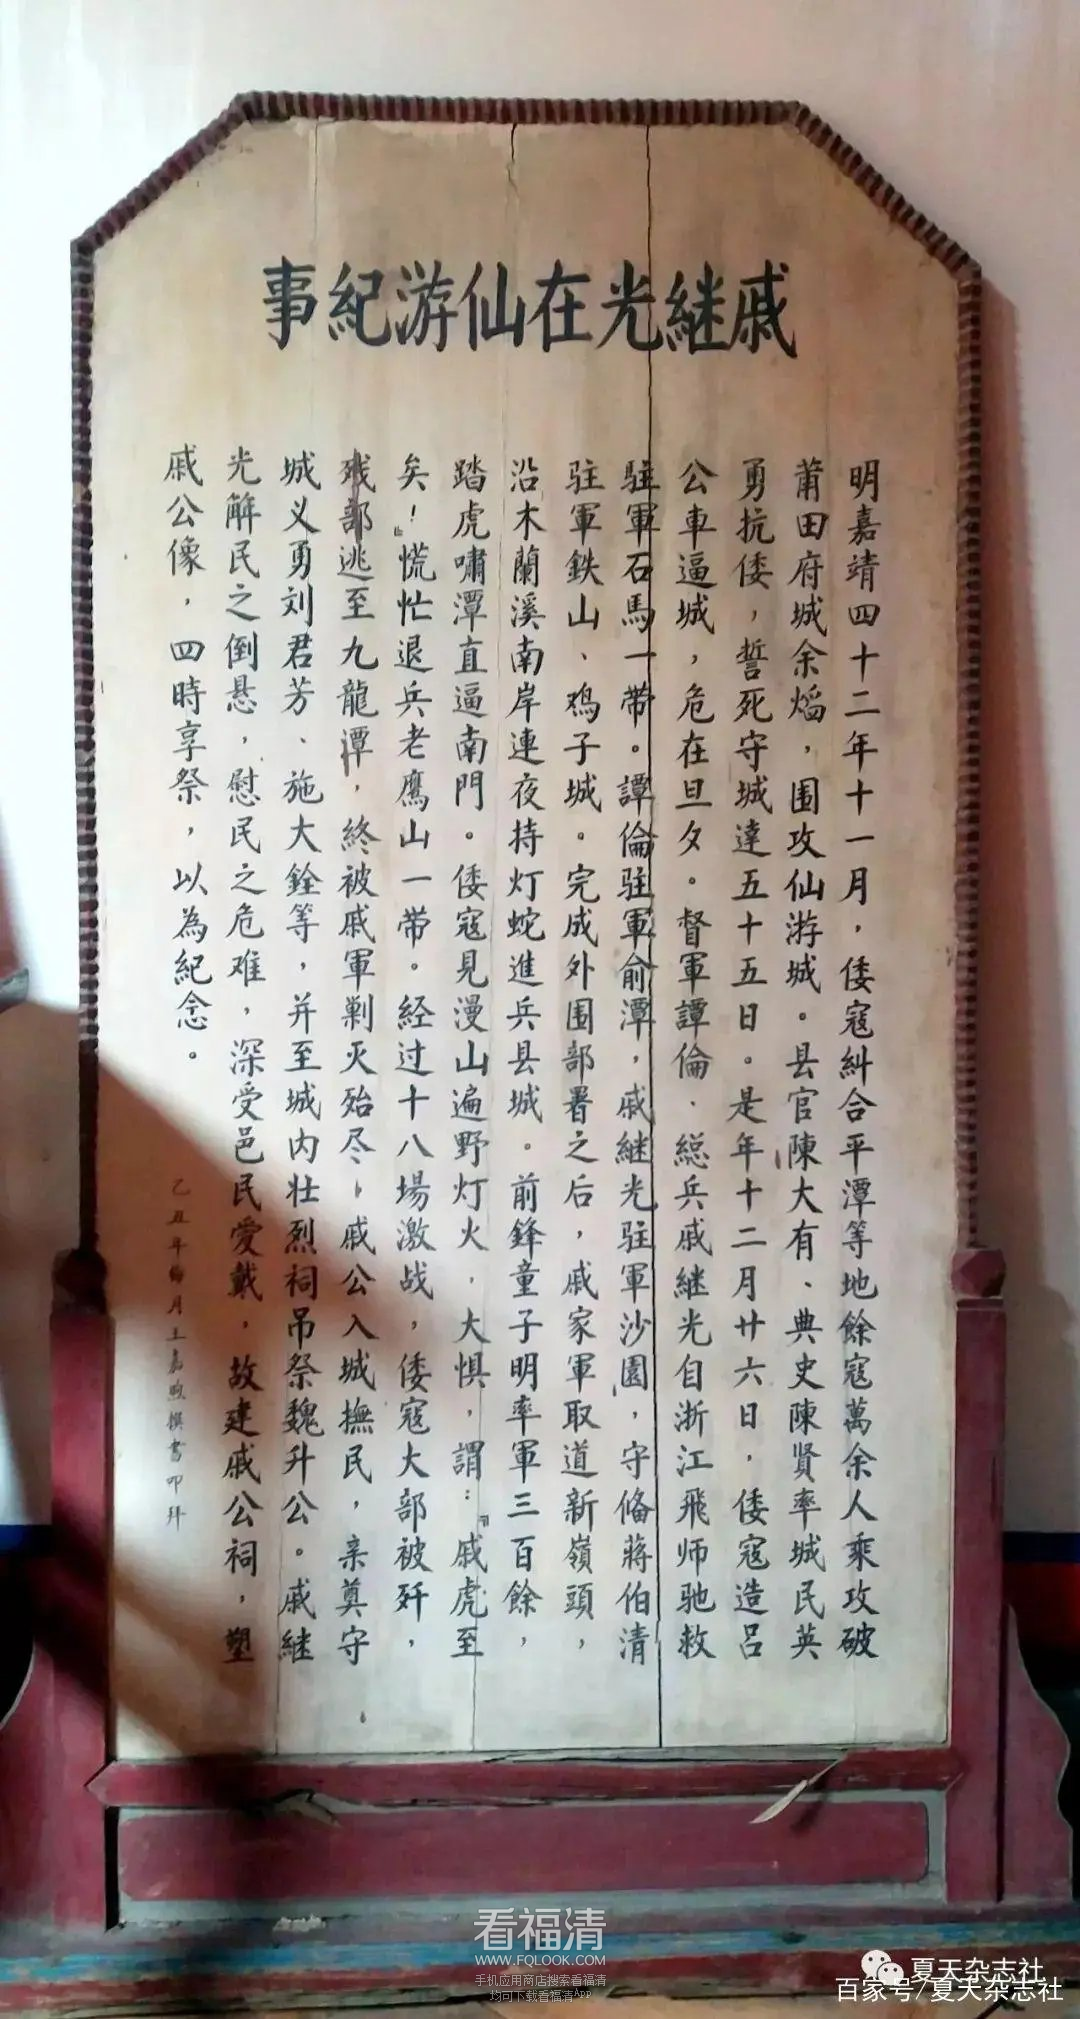 戚継光在仙游紀事
明嘉靖四十二年十一月，倭寇糾合平潭等地餘寇萬余人乘攻破
莆田府城余焰，围攻仙游城。县官陳大有、典史陳賢率城民英
勇抗倭，誓死守城達五十五日。是年十二月廿六日，倭寇造呂
公車逼城，危在旦夕。督軍譚倫、総兵戚継光自浙江飛师驰救
駐軍石馬一帶。譚倫駐軍俞潭，戚継光驻軍沙園，守俻蔣伯清
驻軍鉄山、鸡子城。完成外围部署之后，戚家軍取道新嶺頭，
沿木蘭溪南岸連夜持灯蛇進兵县城。前鋒童子明率軍三百餘，
踏虎嘯潭直逼南門。倭寇見漫山遍野灯火，大惧，謂：『戚虎至
矣！』慌忙退兵老鷹山一带。经过十八場激战，倭寇大部被歼，
残部逃至九龍潭，終被戚軍剿灭殆尽，戚公入城撫民，亲奠守
城义勇刘君芳、施大銓等，并至城内壮烈祠吊祭魏升公。戚継
光解民之倒悬，慰民之危难，深受邑民愛戴，故建戚公祠，塑
戚公像，四時享祭，以為紀念。
乙丑年梅月王嘉煦撰書叩拜
看福清
WWW.FQLOOK.COM
手机应用商店搜索看福清
均可下载看福清APP
夏天杂志社
百家号/夏天杂志社